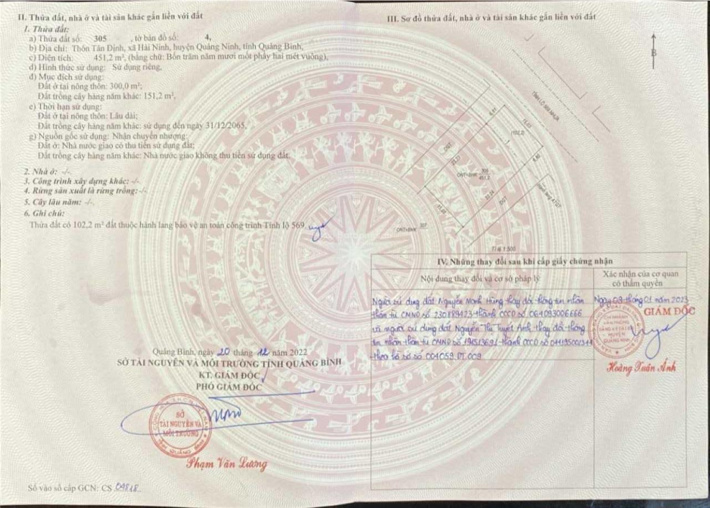 II. Thửa đất, nhà ở và tài sản khác gắn liền với đất
1. Thửa đất:
a) Thửa đất số: 305 , tờ bản đồ số: 4,
b) Địa chỉ: Thôn Tân Định, xã Hải Ninh, huyện Quảng Ninh, tỉnh Quảng Bình,
c) Diện tích: 451,2 m², (bằng chữ: Bốn trăm năm mươi mốt phẩy hai mét vuông),
d) Hình thức sử dụng: Sử dụng riêng,
đ) Mục đích sử dụng:
Đất ở tại nông thôn: 300,0 m²,
Đất trồng cây hàng năm khác: 151,2 m²,
e) Thời hạn sử dụng:
Đất ở tại nông thôn: Lâu dài;
Đất trồng cây hàng năm khác: sử dụng đến ngày 31/12/2065,
g) Nguồn gốc sử dụng: Nhận chuyển nhượng
Đất ở: Nhà nước giao có thu tiền sử dụng đất;
Đất trồng cây hàng năm khác: Nhà nước giao không thu tiền sử dụng đất.
2. Nhà ở: -/-
3. Công trình xây dựng khác: -/-
4. Rừng sản xuất là rừng trồng: -/-
5. Cây lâu năm: -/-
6. Ghi chú:
Thửa đất có 102,2 m² đất thuộc hành lang bảo vệ an toàn công trình Tỉnh lộ 569.
Quảng Bình, ngày 20 tháng 12 năm 2022
SỞ TÀI NGUYÊN VÀ MÔI TRƯỜNG TỈNH QUẢNG BÌNH
KT. GIÁM ĐỐC
PHÓ GIÁM ĐỐC
SỞ
TÀI NGUYÊN VÀ
MÔI TRƯỜNG
Phạm Văn Lương
Số vào sổ cấp GCN: CS
III. Sơ đồ thửa đất, nhà ở và tài sản khác gắn liền với đất
B
IV. Những thay đổi sau khi cấp giấy chứng nhận
Nội dung thay đổi và cơ sở pháp lý
Xác nhận của cơ quan
có thẩm quyền
Người sử dụng đất Nguyễn Mạnh Hùng thay đổi thông tin nhân
thân từ CMND số 230189123 thành CCCD số 064083006666
và người sử dụng đất Nguyễn Thị Tuyết Anh thay đổi thông
tin nhân thân từ CMND số thành CCCD số
theo hồ sơ số
Ngày 03 tháng 01 năm 2023
GIÁM ĐỐC
Hoàng Tuấn Anh